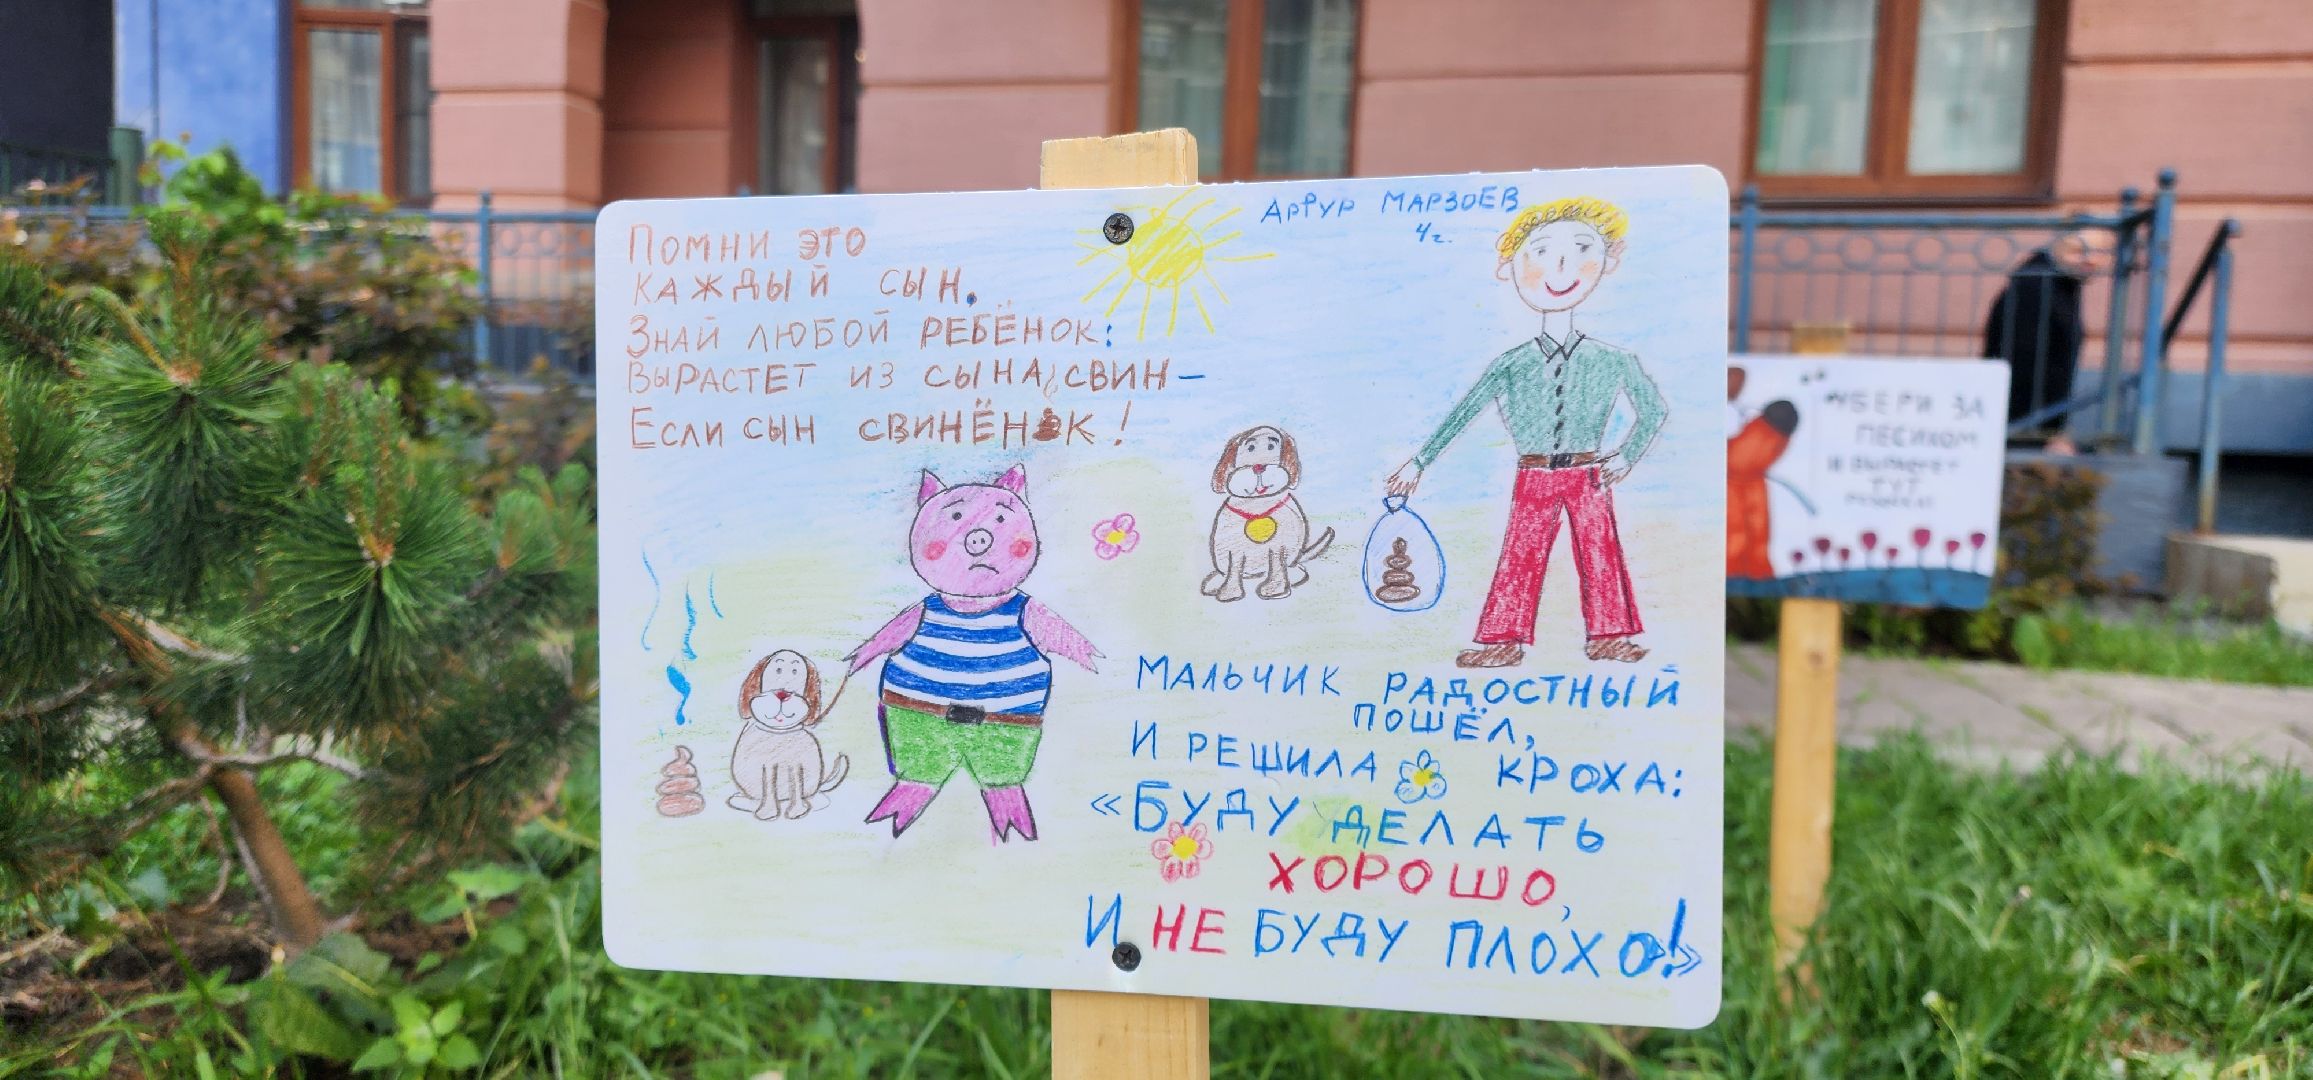 Помни это
каждый сын.
Знай любой ребёнок:
Вырастет из сына свин –
Если сын свинёнок!
Артур Марзоев
4 г.
Мальчик радостный
пошёл,
и решила кроха:
«Буду делать
хорошо,
и не буду плохо!»
Убери за
песиком
и вырастет
тут